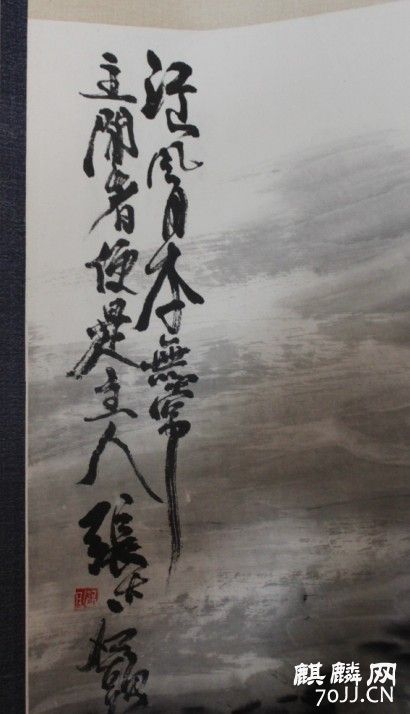 江山風月本無常
主閒者便是主人 張
麒麟网
70JJ.CN